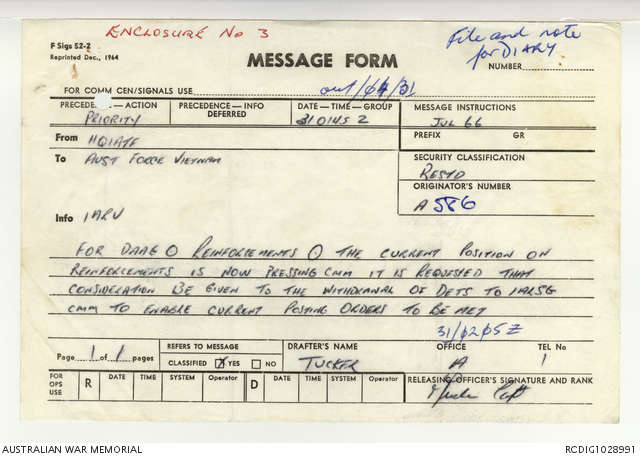 ENCLOSURE No 3
File and note
for DIARY
F Sigs 52-2
Reprinted Dec., 1964
MESSAGE FORM
NUMBER
FOR COMM CEN/SIGNALS USE out/04/31
PRECEDENCE—ACTION
PRIORITY
PRECEDENCE—INFO
DEFERRED
DATE—TIME—GROUP
310145 Z
MESSAGE INSTRUCTIONS
JUL 66
PREFIX GR
From HQ1ATF
To AUST FORCE VIETNAM
SECURITY CLASSIFICATION
RESTD
ORIGINATOR'S NUMBER
A 586
Info 1ARU
FOR DAAG O REINFORCEMENTS O THE CURRENT POSITION ON
REINFORCEMENTS IS NOW PRESSING CMM IT IS REQUESTED THAT
CONSIDERATION BE GIVEN TO THE WITHDRAWAL OF DETS TO 1ALSG
CMM TO ENABLE CURRENT POSTING ORDERS TO BE MET
31/0205Z
Page 1 of 1 pages
REFERS TO MESSAGE
CLASSIFIED X YES NO
DRAFTER'S NAME
TUCKER
OFFICE
A
TEL No
1
FOR OPS USE R DATE TIME SYSTEM Operator D DATE TIME SYSTEM Operator
RELEASING OFFICER'S SIGNATURE AND RANK
Capt
AUSTRALIAN WAR MEMORIAL
RCDIG1028991